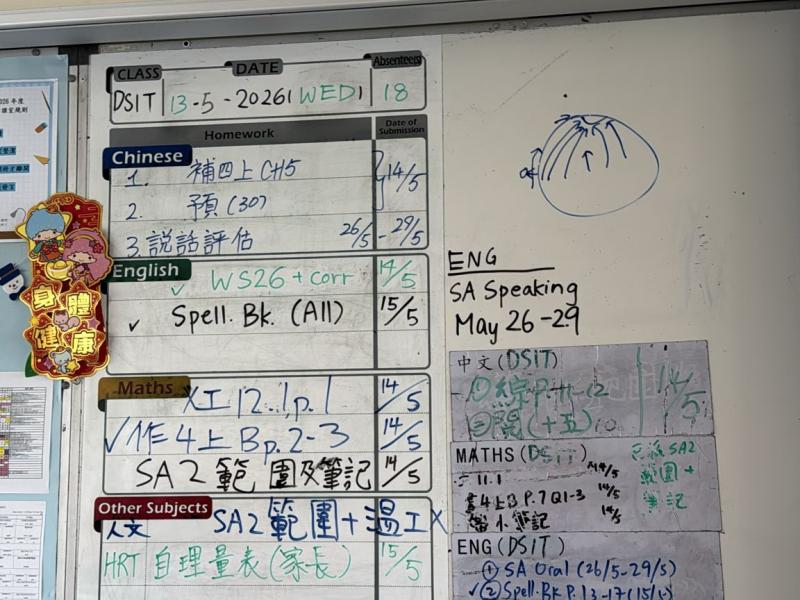 CLASS DATE Absentee(s)
DSIT 13-5-2026 WED 18
Homework Date of Submission
Chinese
1. 補四上CH5
2. 預(30) 14/5
3. 説話評估 26/5 - 29/5
English
✓ WS26 + corr 14/5
✓ Spell. Bk. (All) 15/5
Maths
工12.1p.1 14/5
✓作4上Bp.2-3 14/5
SA2範圍及筆記 14/5
Other Subjects
人文 SA2範圍+溫工
HRT 自理量表(家長) 15/5
身體健康
ENG
SA Speaking
May 26-29
中文(DSIT)
①綜P.11-12 14/5
②閱(十五)
MATHS (DSIT)
11.1 14/5
4上B P.7 Q1-3 14/5
小筆記 14/5
SA2
範圍+
筆記
ENG(DSIT)
① SA Oral (26/5-29/5)
✓② Spell. Bk P.13-17 (15/5)